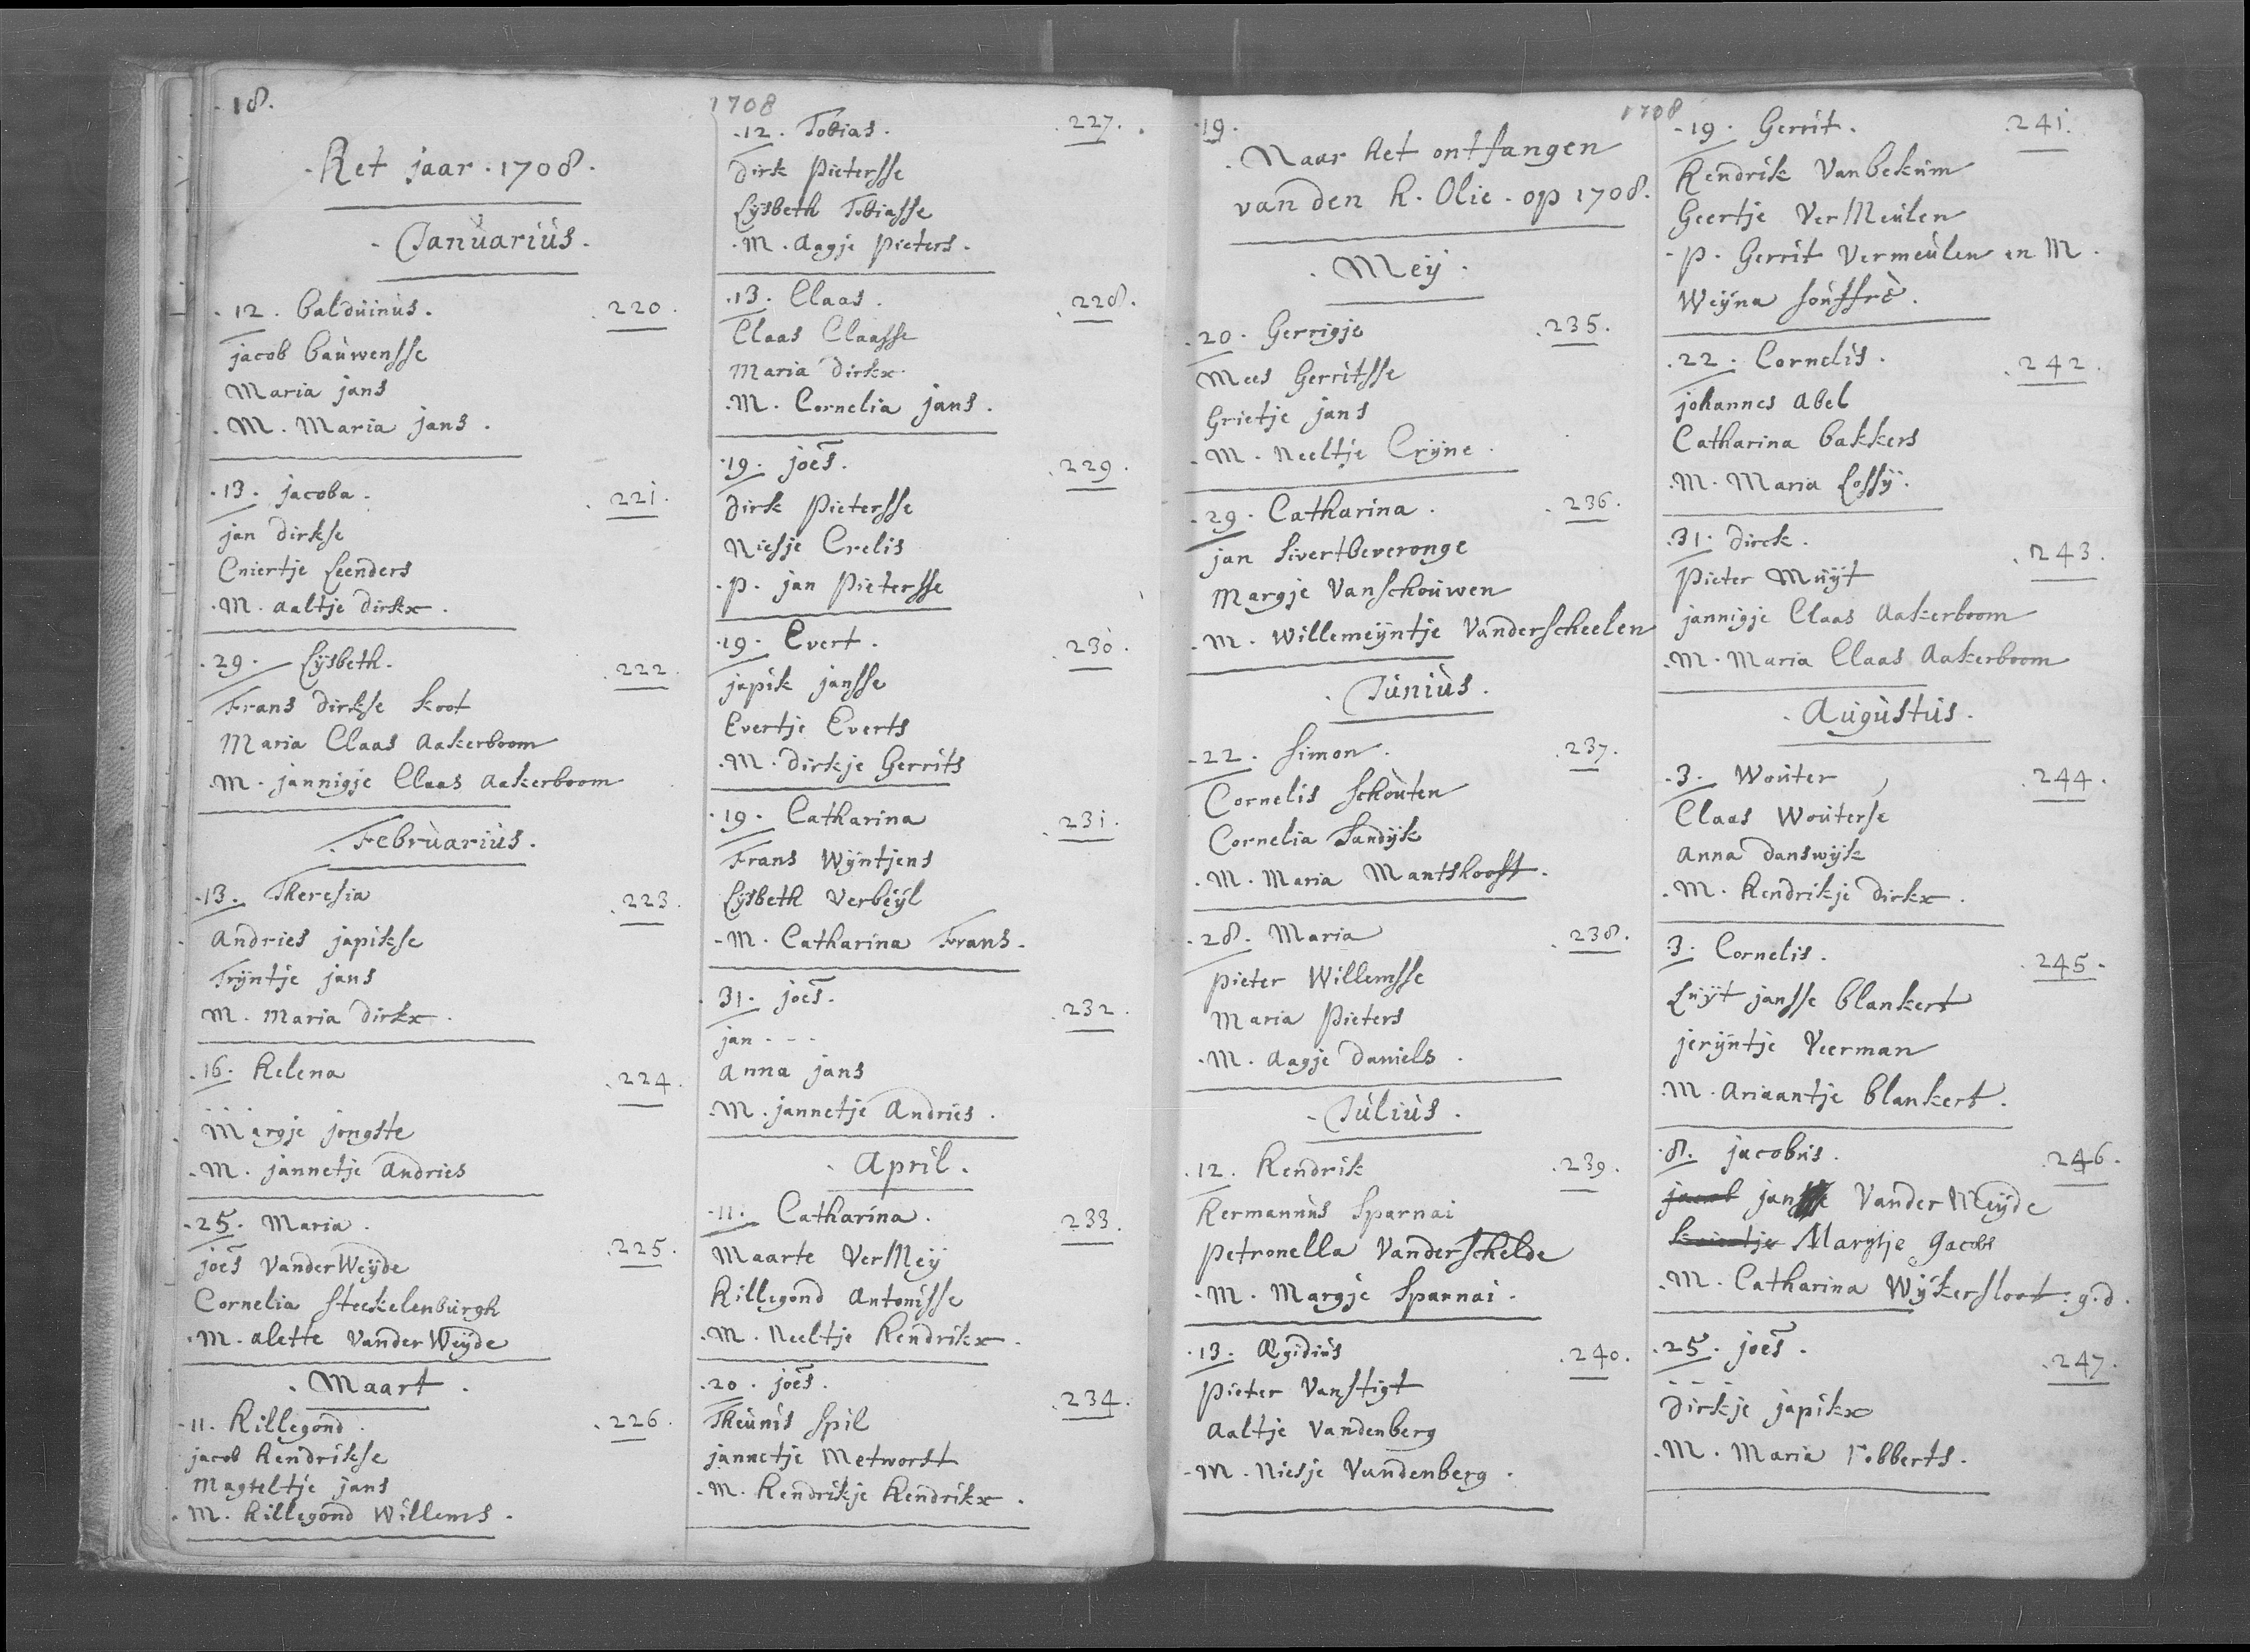 18.
Het jaar. 1708.
Januarius.
12. Balduinus. 220.
jacob bauwensse
Maria jans
M. Maria jans.
13. jacoba. 221.
jan dirkse
Cniertje Leenders
M. aaltje dirkx.
29. Lysbeth. 222.
Frans dirkse koot
Maria Claas Aakerboom
M. jannigje Claas Aakerboom
Februarius.
13. Theresia 223.
Andries japikse
Tryntje jans
M. Maria dirkx.
16. Helena 224.
Margje jongste
M. jannetje Andries
25. Maria. 225.
joes VanderWeyde
Cornelia Steekelenburgh
M. alette VanderWeyde
Maart.
11. Hillegond. 226.
jacob Hendrikse
Magteltje jans
M. Hillegond Willems.
1708
12. Tobias. 227.
Dirk Pietersse
Lysbeth Tobiasse
M. Aagje Pieters.
13. Claas. 228.
Claas Claasse
Maria Dirkx
M. Cornelia jans.
19. joes. 229.
Dirk Pietersse
Niesje Crelis
P. jan Pietersse
19. Evert. 230.
japik jansse
Evertje Everts
M. Dirkje Gerrits
19. Catharina 231.
Frans Wyntjens
Lysbeth Verbeyl
M. Catharina Frans.
31. joes. 232.
jan - - -
Anna jans
M. jannetje Andries.
April.
11. Catharina. 233.
Maarte VerMey
Hillegond Antonisse
M. Neeltje Hendrikx.
20. joes. 234.
Theunis Spil
jannetje Metworst
M. Hendrikje Hendrikx.
19.
Naar het ontfangen
van den H. Olie. op 1708.
Mey.
20. Gerrigje 235.
Mees Gerritsse
Grietje jans
M. Neeltje Cryne.
29. Catharina. 236.
jan Sivertbeveronge
Margje Vanschouwen
M. Willemeyntje Vanderscheelen
Junius.
22. Simon. 237.
Cornelis Schouten
Cornelia Sandyk
M. Maria Mantshooft.
28. Maria 238.
Pieter Willemsse
Maria Pieters
M. Aagje Daniels.
Julius.
12. Hendrik 239.
Hermannus Sparnai
Petronella Vanderschelde
M. Margje Sparnai.
13. Ægidius 240.
Pieter Vanstigt
Aaltje Vandenberg
M. Niesje Vandenberg.
1708
19. Gerrit. 241.
Hendrik Vanbekum
Geertje VerMeulen
P. Gerrit Vermeulen en M.
Weyna souffrè.
22. Cornelis. 242.
johannes Abel
Catharina Bakkers
M. Maria Lossy.
31. Dirck. 243.
Pieter Muyt
jannigje Claas Aakerboom
M. Maria Claas Aakerboom
Augustus.
3. Wouter 244.
Claas Wouterse
Anna Danswyk
M. Hendrikje Dirkx.
3. Cornelis. 245.
Luyt jansse Blankert
jeryntje Veerman
M. Ariaantje Blankert.
8. jacobus. 246.
jacob jansse VanderMeyde
Margtje Jacobs
M. Catharina Wykersloot. g. d.
25. joes. 247.
- - -
Dirkje japikx
M. Maria Fobberts.